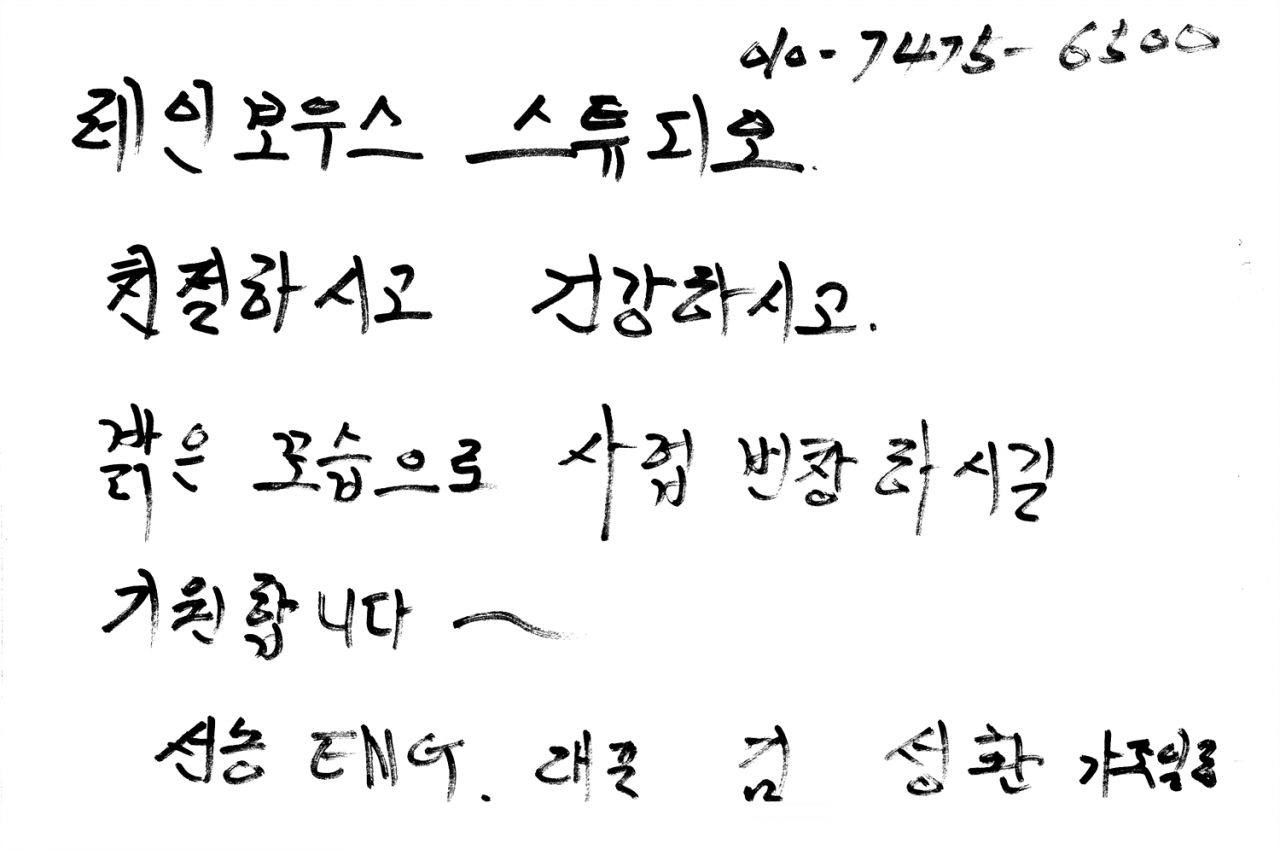 010-7475-6500
레인보우스 스튜디오.
친절하시고 건강하시고.
젊은 모습으로 사업 번창하시길
기원합니다~
선승 ENG. 대표 김 성환 가족일동